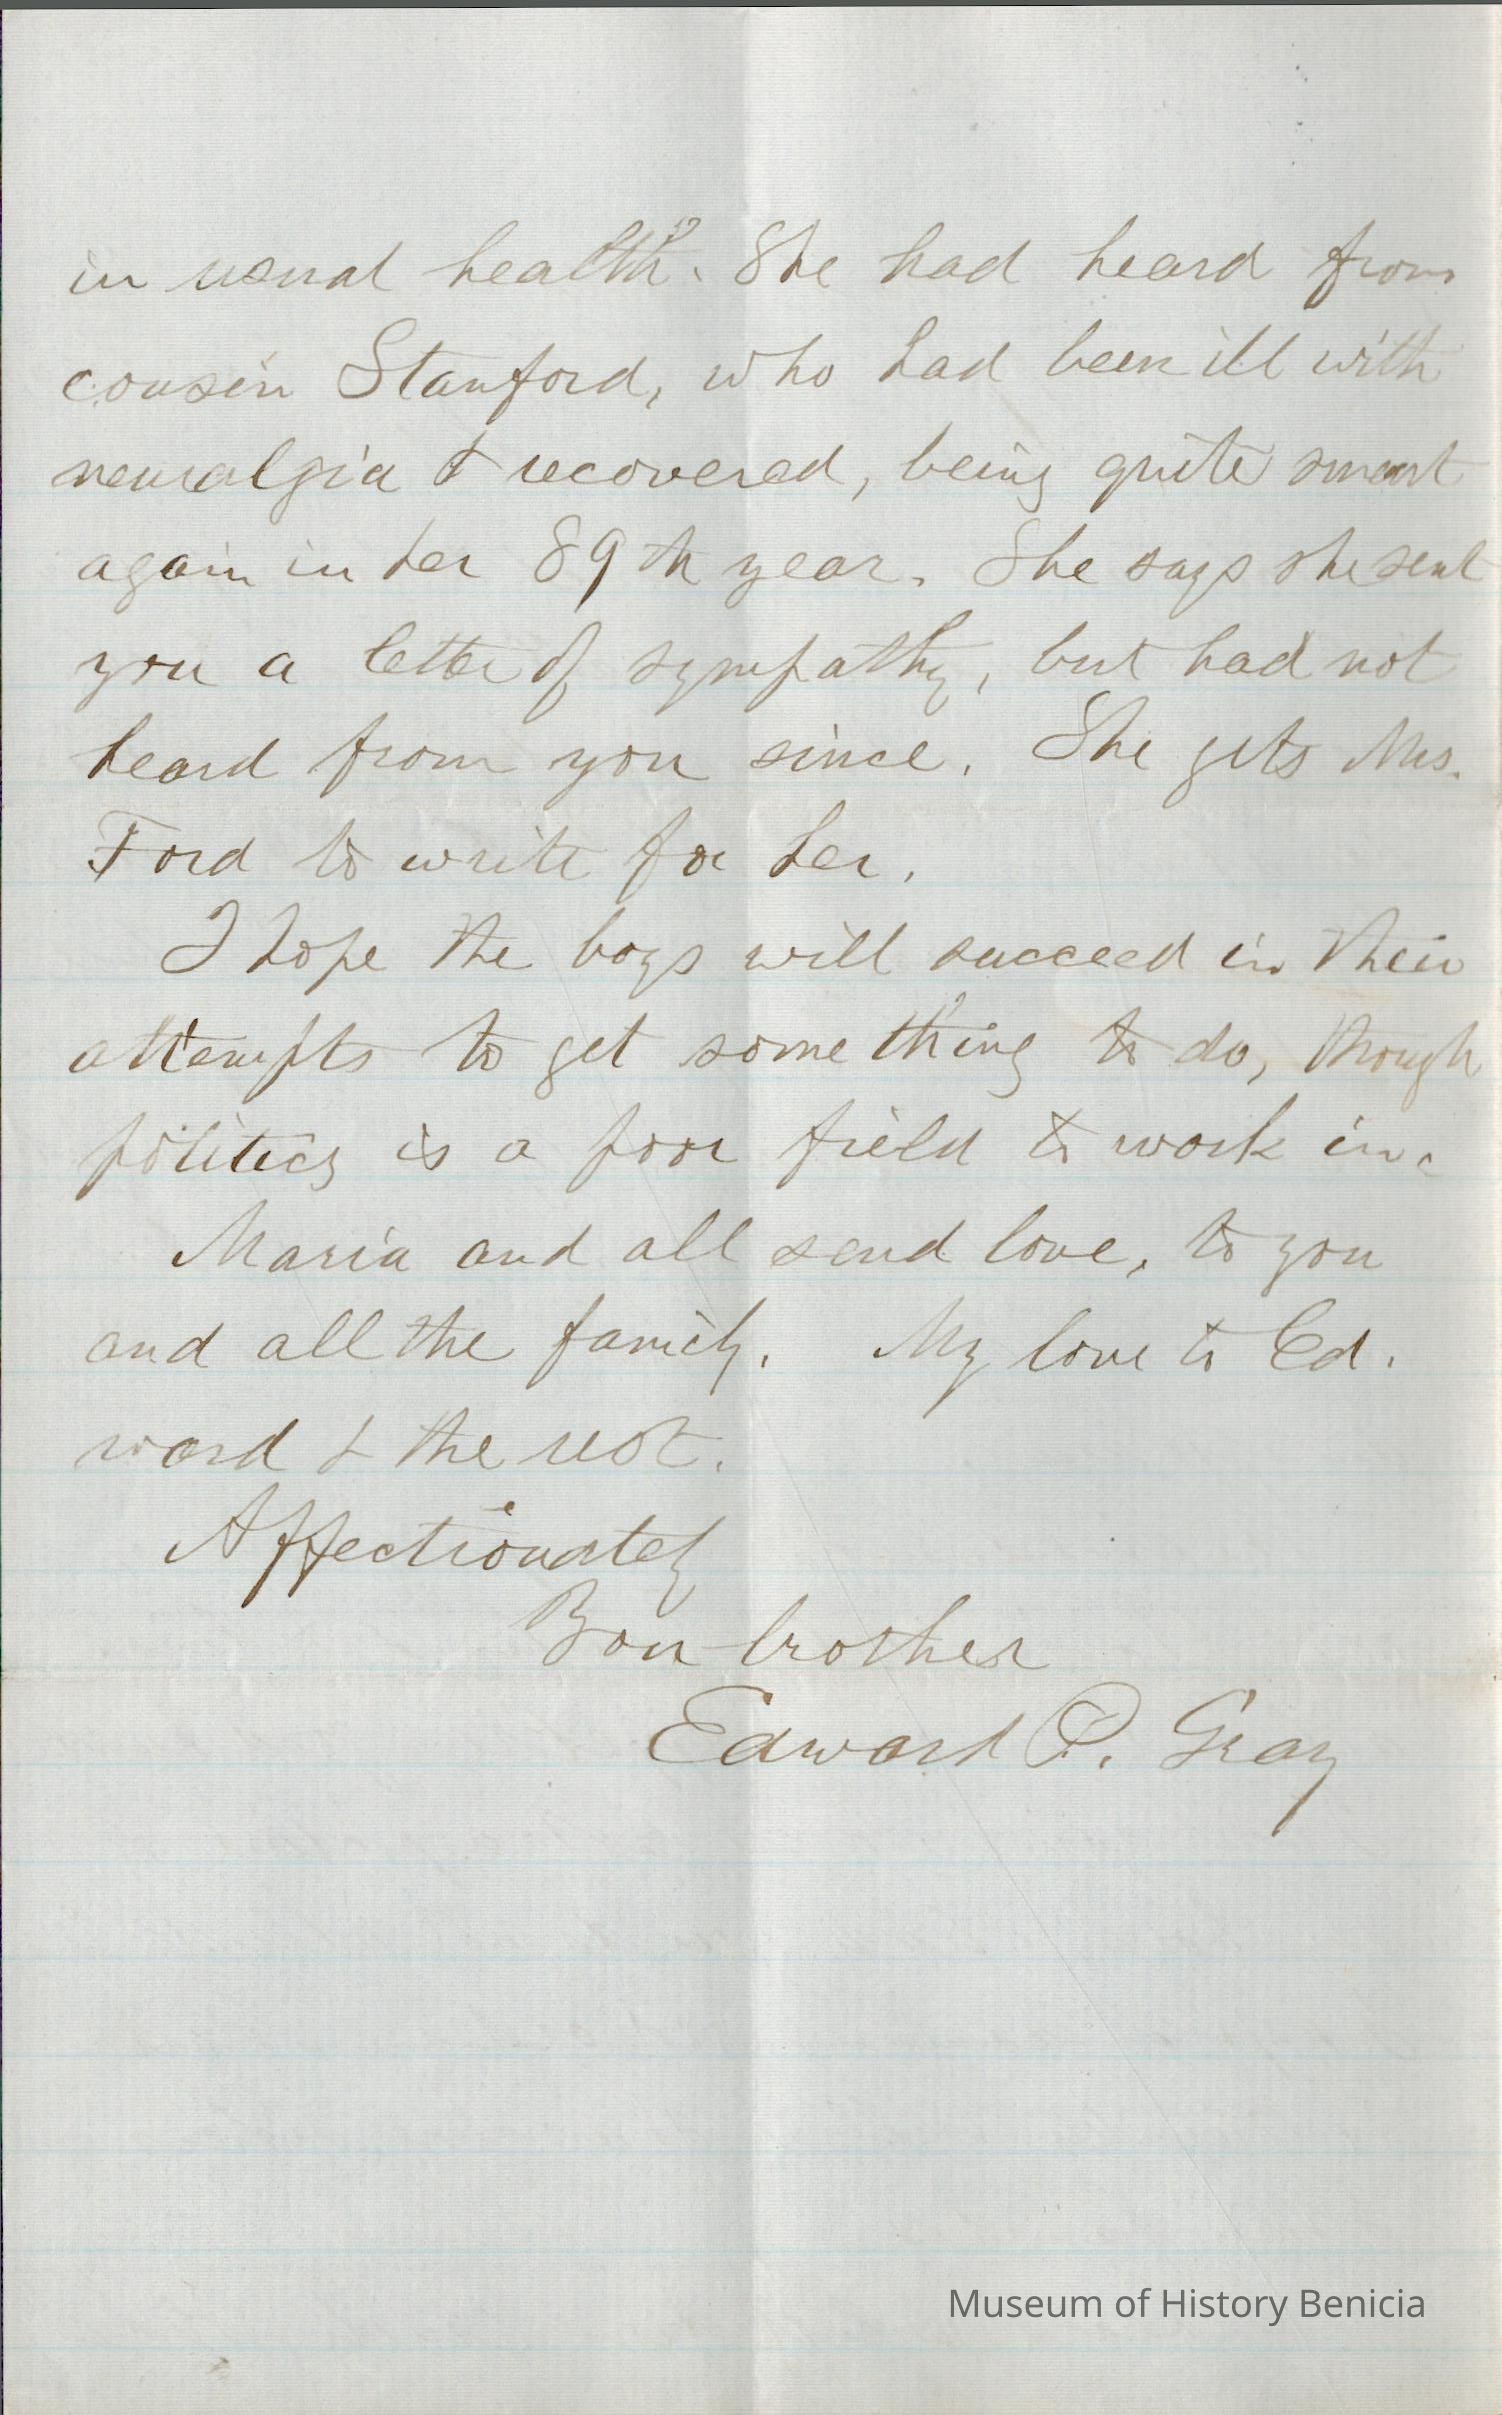 in usual health. She had heard from
cousin Stanford, who had been ill with
neuralgia & recovered, being quite smart
again in her 89th year. She says she sent
you a letter of sympathy, but had not
heard from you since. She gets Mrs.
Ford to write for her.
I hope the boys will succeed in their
attempts to get something to do, though
politics is a poor field to work in.
Maria and all send love, to you
and all the family. My love to Ed.
ward & the rest.
Affectionately
Your brother
Edward P. Gray
Museum of History Benicia